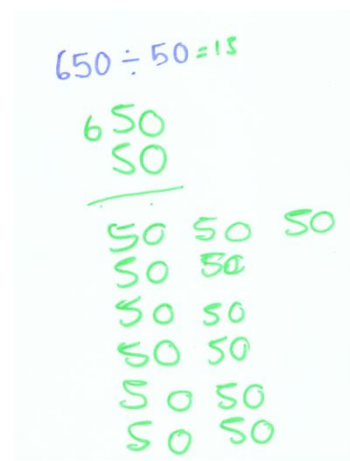 650 ÷ 50 = 13
650
50
50 50 50
50 50
50 50
50 50
50 50
50 50